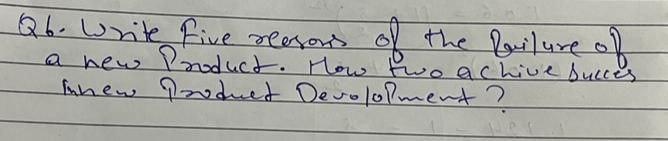 Q6. Write Five reasons of the failure of
a new Product. How two achive Succes
in new Product Devolopment ?